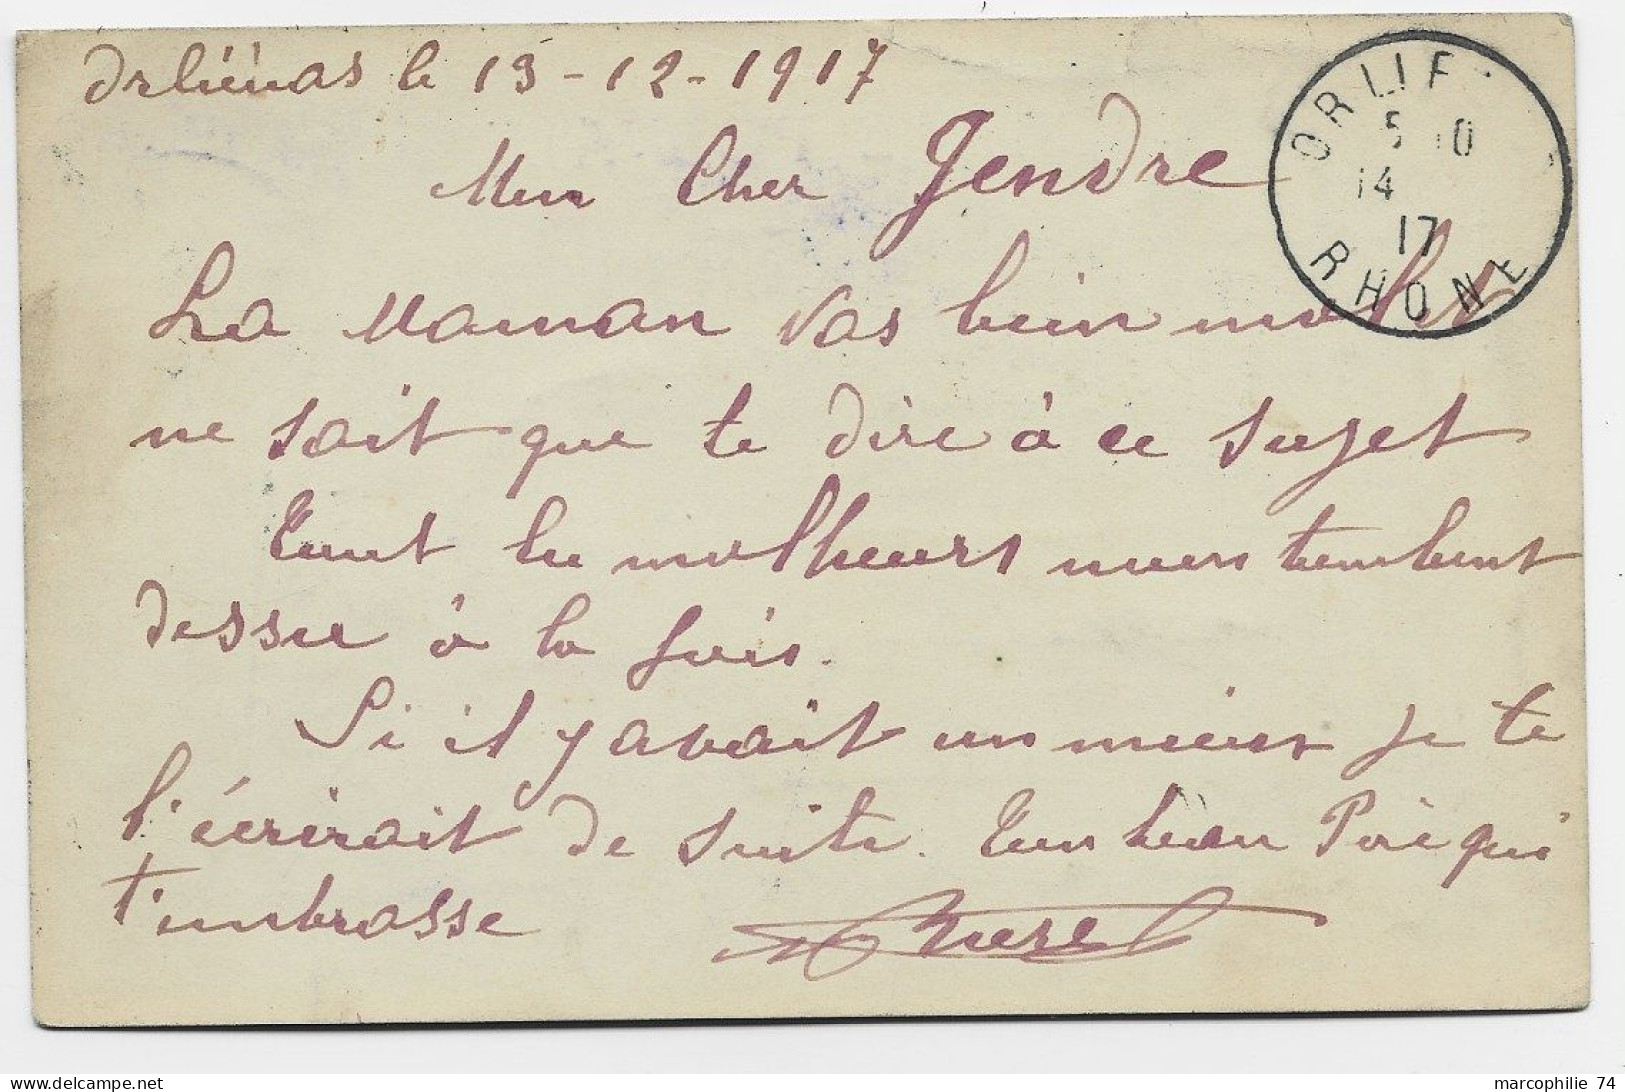 Orliénas le 13-12-1917
ORLIE
5 10
14
17
RHONE
Mon Cher Gendre
La Maman vas bien mal
ne sait que te dire à ce sujet
Tout les malheurs nous tombent
dessu à la fois.
Si il y avait un mieux je te
l'écrirait de suite. Ton beau Père qui
t'embrasse
Burel
marcophilie 74